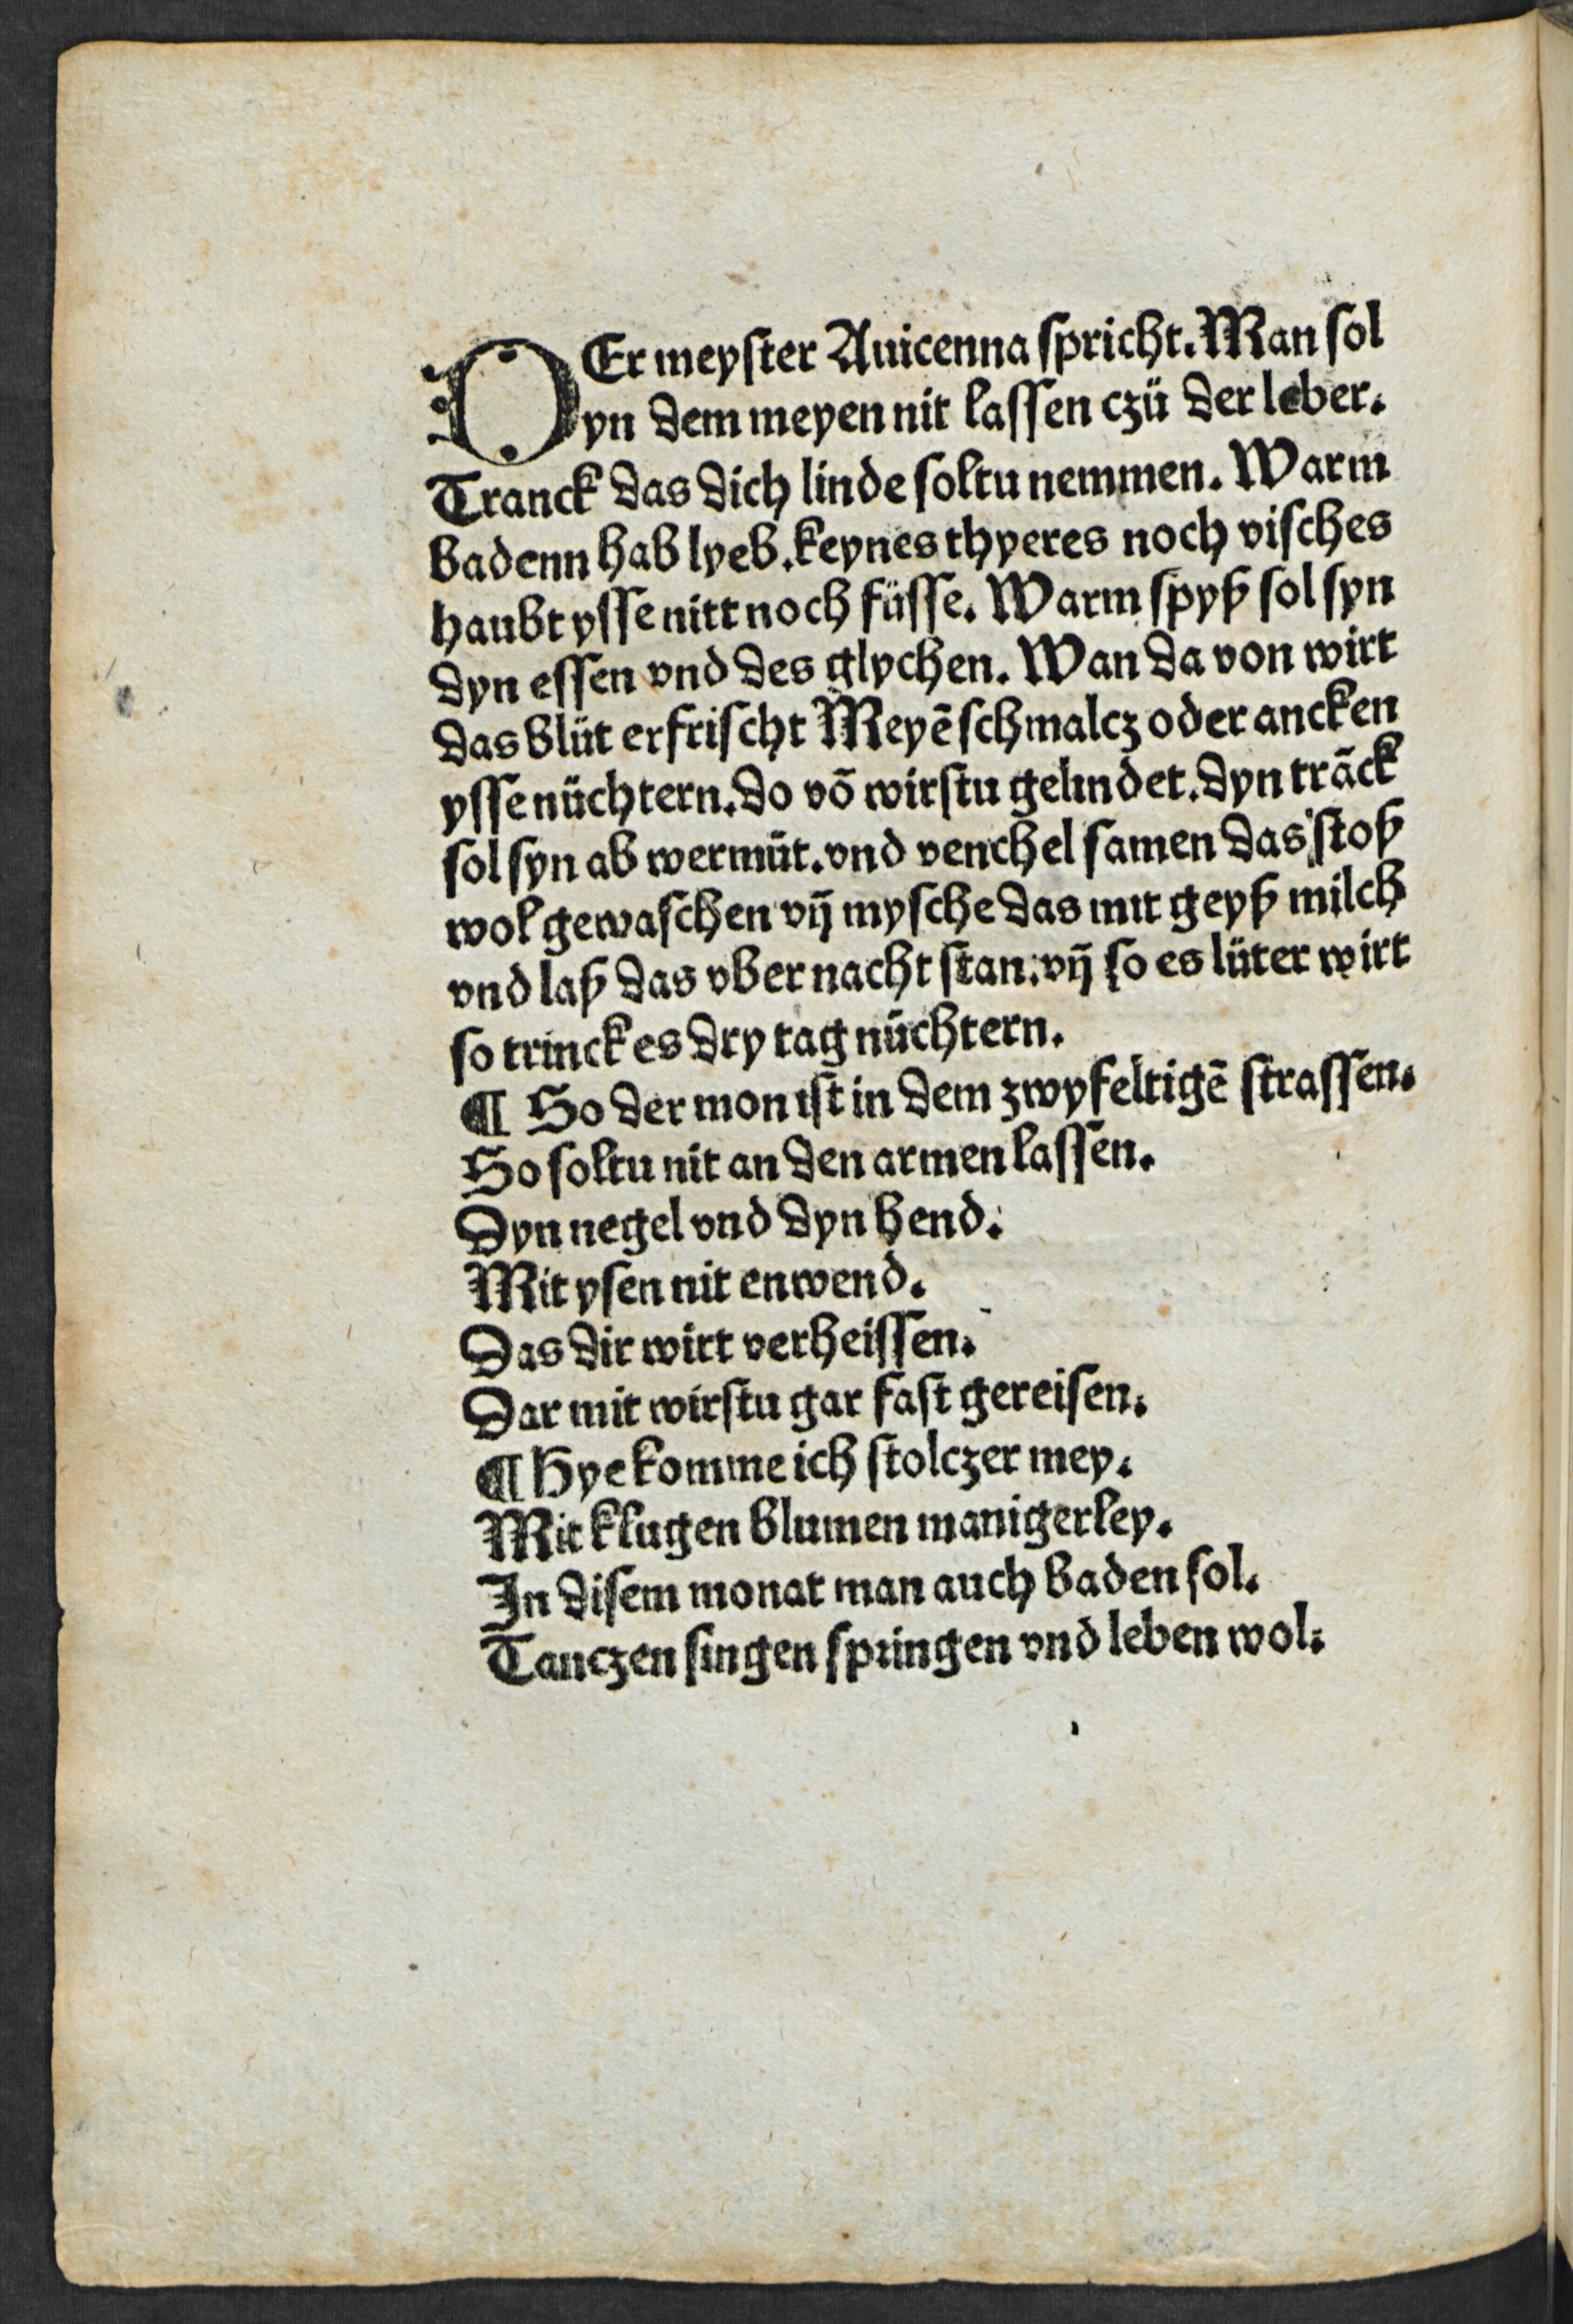 DEr meyster Auicenna spricht. Man sol
yn dem meyen nit lassen czü der leber.
Tranck das dich linde soltu nemmen. Warm
badenn hab lyeb. keynes thyeres noch visches
haubt ysse nitt noch füsse. Warm spyß sol syn
dyn essen vnd des glychen. Wan da von wirt
das blüt erfrischt Meyē schmalcz oder ancken
ysse nüchtern. do vō wirstu gelindet. dyn trāck
sol syn ab wermüt. vnd venchel samen das stoß
wol gewaschen vn̄ mysche das mit geyß milch
vnd laß das vber nacht stan. vn̄ so es lüter wirt
so trinck es dry tag nüchtern.
¶ So der mon ist in dem zwyfeltigē strassen.
So soltu nit an den armen lassen.
Dyn negel vnd dyn hend.
Mit ysen nit enwend.
Das dir wirt verheissen.
Dar mit wirstu gar fast gereisen.
¶ Hye komme ich stolczer mey.
Mit klugen blumen manigerley.
In disem monat man auch baden sol.
Tanczen singen springen vnd leben wol.